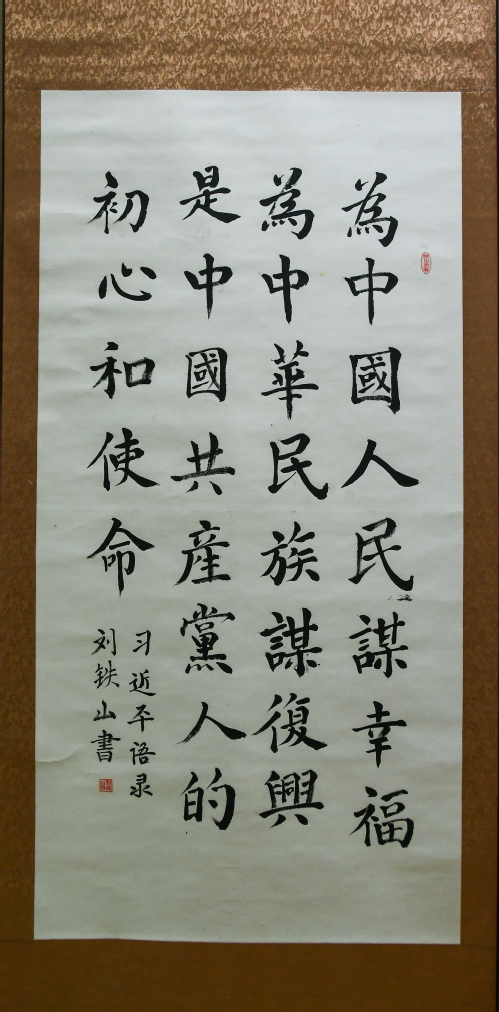 為中國人民謀幸福
為中華民族謀復興
是中國共産黨人的
初心和使命
习近平语录
刘铁山書